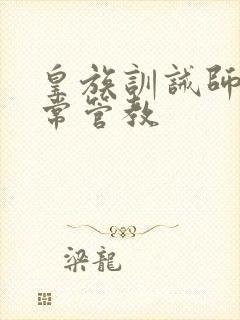 皇族訓誡師
常管教
梁龍